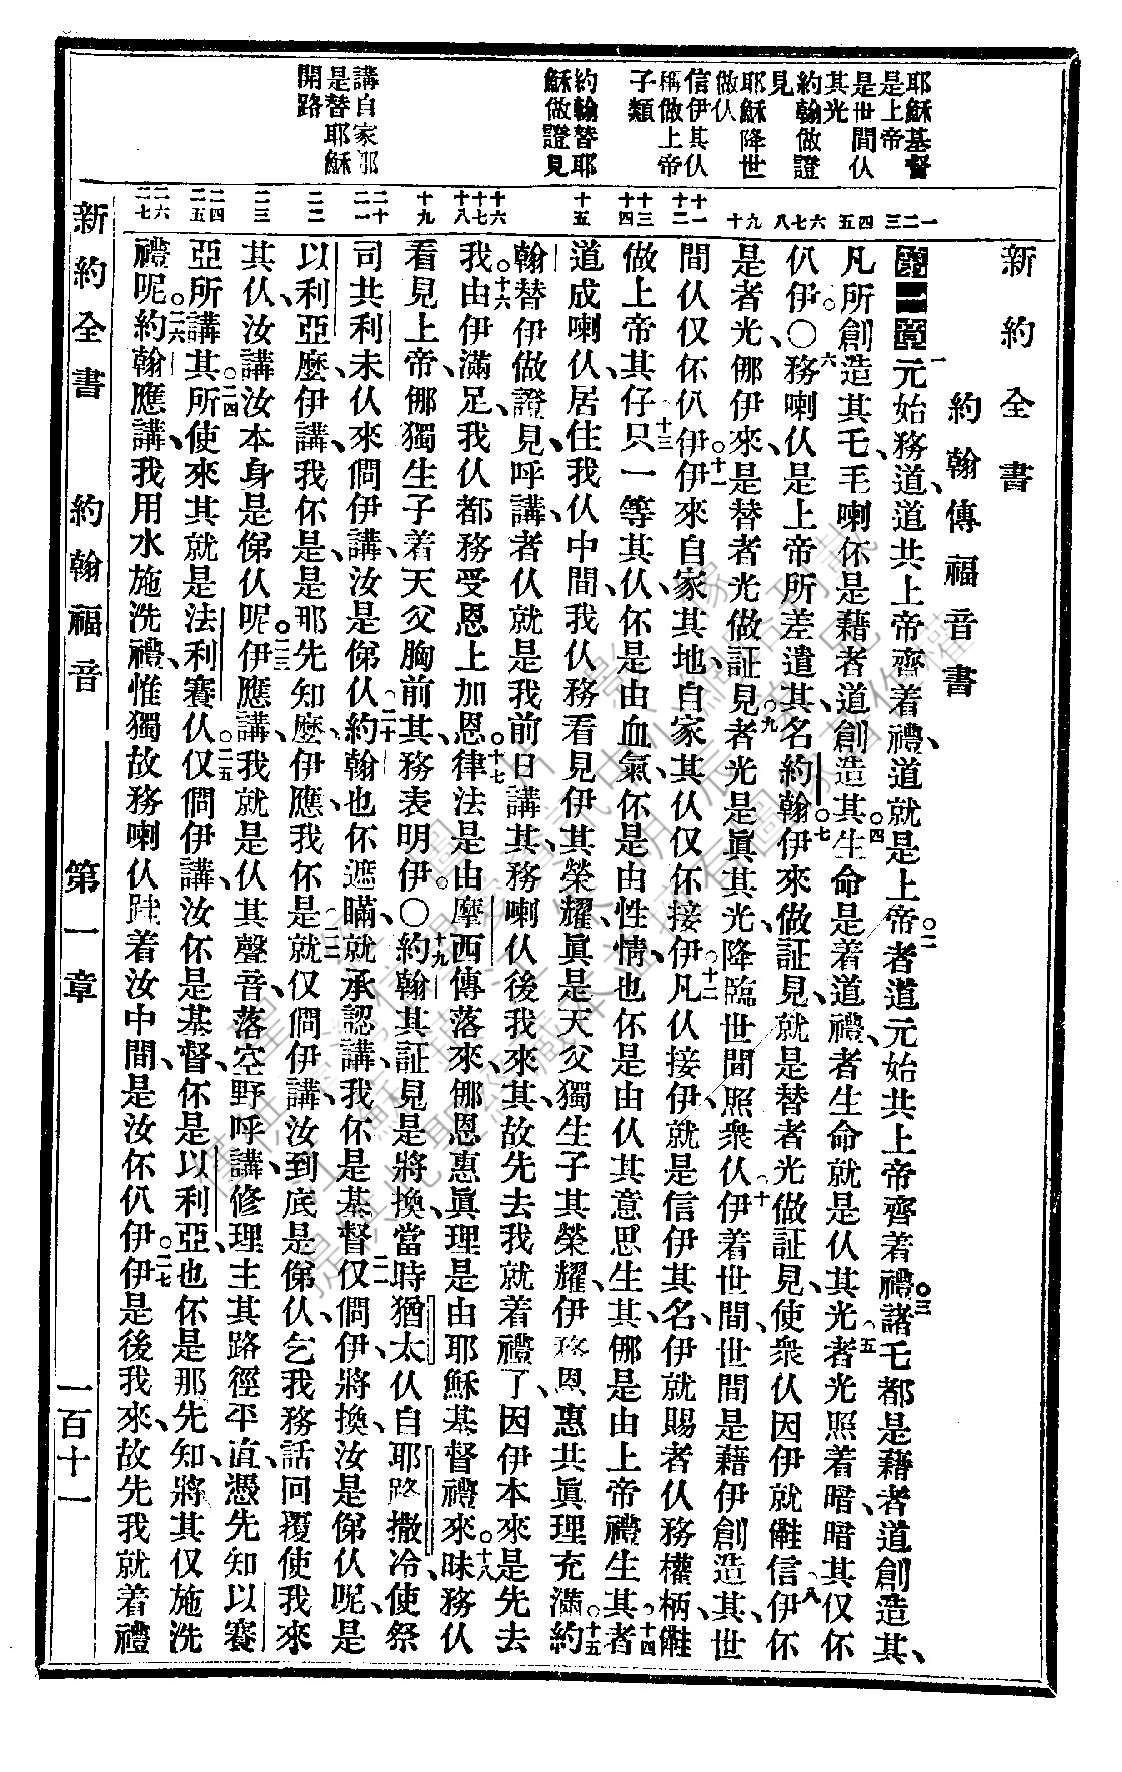 新約全書
約翰傳福音書
耶穌基督
是上帝
是世間仈
其光
約翰做證
見
耶穌降世
做仈
信伊其仈
稱做上帝
子類
約翰替耶
穌做證見
講自家那
是替耶穌
開路
第一章 一元始務道、道共上帝齊着禮、道就是上帝。二者道元始共上帝齊着禮。三諸乇都是藉者道創造其、
凡所創造其乇毛喇伓是藉者道創造其。四生命是着道禮、者生命就是仈其光。五者光照着暗、暗其仅伓
仈伊。〇六務喇仈是上帝所差遣其、名約翰。七伊來做証見、就是替者光做証見、使衆仈因伊就𠋡信。八伊伓
是者光、那伊來是替者光做証見。九者光是眞其光、降臨世間照衆仈。十伊着世間、世間是藉伊創造其、世
間仈仅伓仈伊。十一伊來自家其地、自家其仈仅伓接伊。十二凡仈接伊、就是信伊其名、伊就賜者仈務權柄、𠋡
做上帝其仔。十三只一等其仈、伓是由血氣、伓是由性情、也伓是由仈其意思生其、那是由上帝禮生其。十四者
道成喇仈、居住我仈中間、我仈務看見伊其榮耀、眞是天父獨生子其榮耀、伊務恩惠共眞理充滿。十五約
翰替伊做證見、呼講、者仈就是我前日講其、務喇仈後我來、其故先去我就着禮了、因伊本來是先去
我。十六由伊滿足、我仈都務受恩上加恩。十七律法是由摩西傳落來、那恩惠眞理是由耶穌基督禮來。十八昧務仈
看見上帝、那獨生子着天父胸前其、務表明伊。〇十九約翰其証見是將換、當時猶太仈自耶路撒冷、使祭
司共利未仈來問伊講、汝是俤仈。二十約翰也伓遮瞞、就承認講、我伓是基督。二一仅問伊、將換、汝是俤仈呢、是
以利亞麽、伊講、我伓是、是那先知麽、伊應、我伓是。二二就仅問伊講、汝到底是俤仈、乞我務話回覆使我來
其仈、汝講汝本身是俤仈呢。二三伊應講、我就是仈其聲音、落空野呼講、修理主其路徑平直、憑先知以賽
亞所講其。二四所使來其就是法利賽仈。二五仅問伊講、汝伓是基督、伓是以利亞、也伓是那先知、將其仅施洗
禮呢。二六約翰應講、我用水施洗禮、惟獨故務喇仈跬着汝中間、是汝伓仈伊。二七伊是後我來、故先我就着禮
新約全書 約翰福音 第一章 一百十一